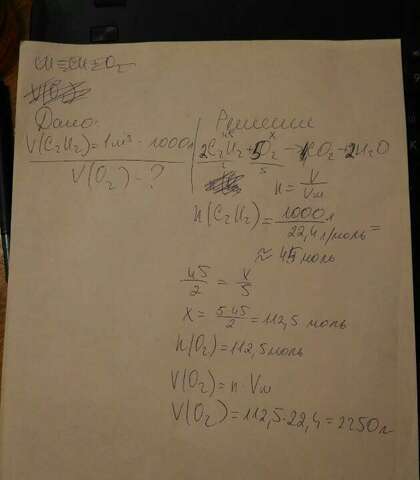 CH≡CH+O₂
Дано:
V(C₂H₂)=1м³ - 1000л
V(O₂) - ?
Решение
45 x
2C₂H₂+5O₂→4CO₂+2H₂O
2 5
n=V/Vм
n(C₂H₂)=1000л/22,4л/моль=
≈45моль
45/2=x/5
x=5·45/2=112,5 моль
n(O₂)=112,5моль
V(O₂)=n·Vм
V(O₂)=112,5·22,4=2250л